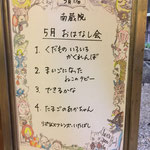 南蔵院
5月 おはなし会
1. くだもの いろいろ
かくれんぼ
2. まいごになった
ねこのタビー
3. できるかな
4. たまごのあかちゃん